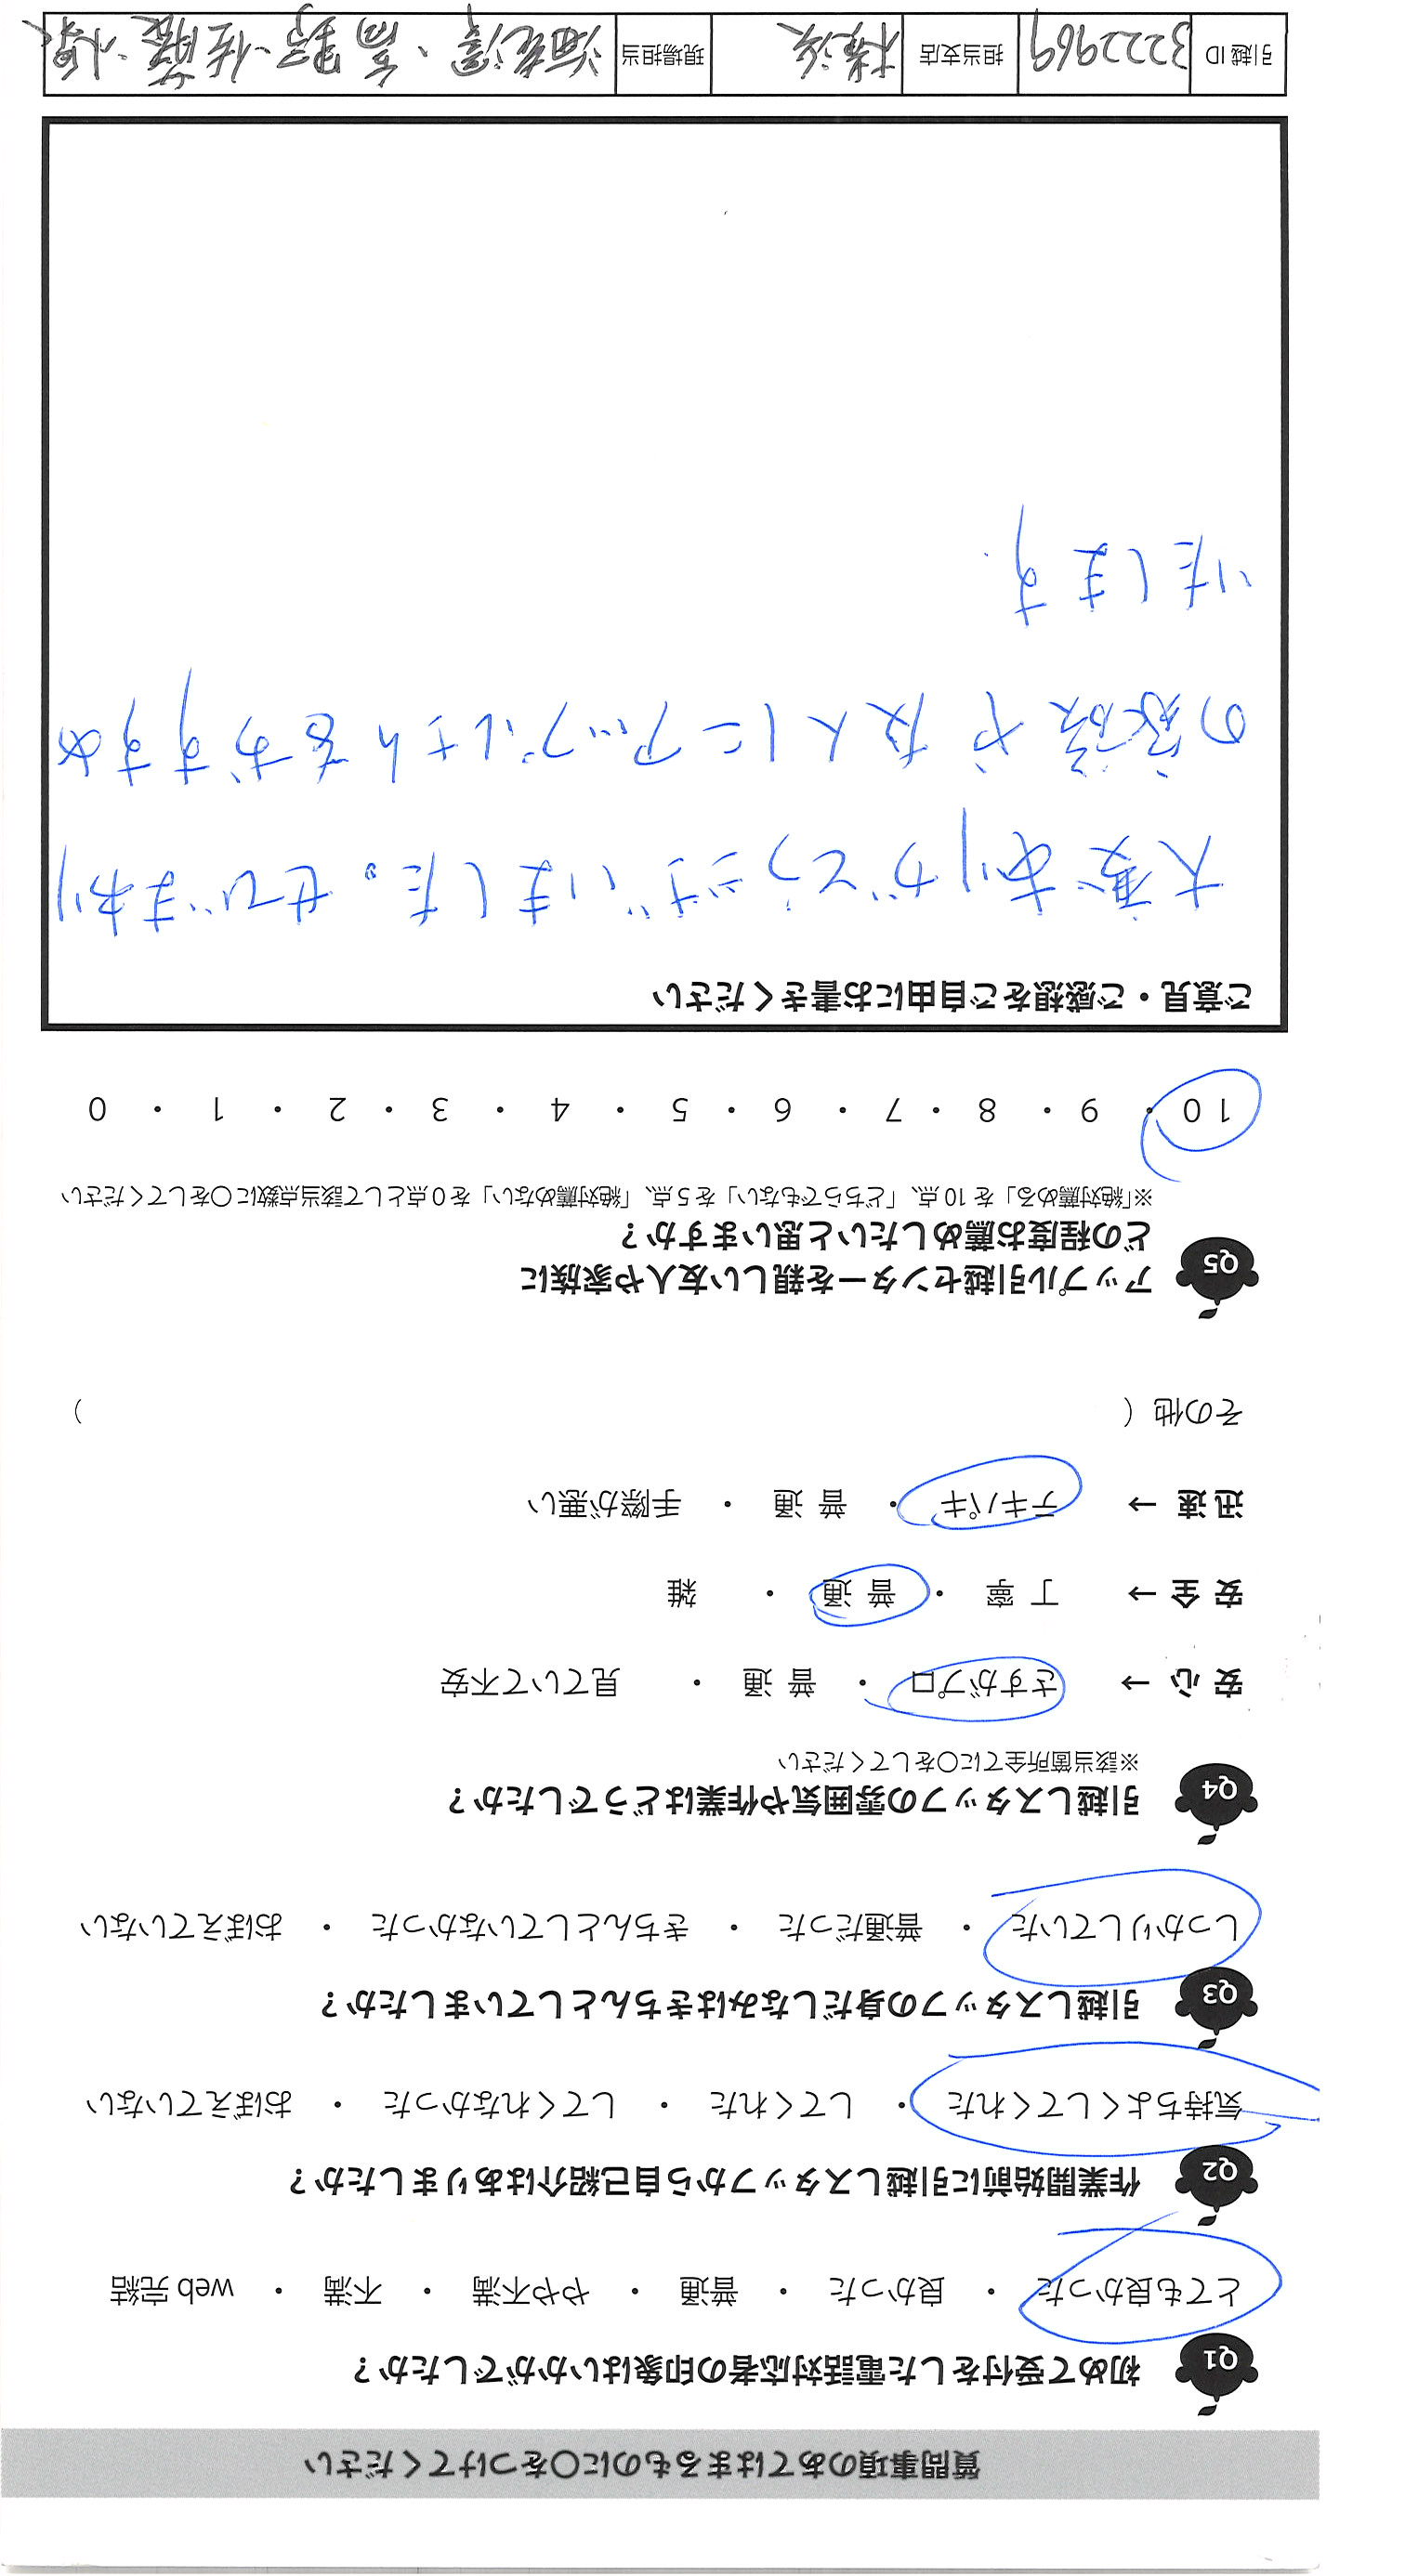 質問事項のあてはまるものに〇をつけてください
Q1 初めて受付をした電話対応者の印象はいかがでしたか？
とても良かった ・ 良かった ・ 普通 ・ やや不満 ・ 不満 ・ web 完結
Q2 作業開始前に引越しスタッフから自己紹介はありましたか？
気持ちよくしてくれた ・ してくれた ・ してくれなかった ・ おぼえていない
Q3 引越しスタッフの身だしなみはきちんとしていましたか？
しっかりしていた ・ 普通だった ・ きちんとしていなかった ・ おぼえていない
Q4 引越しスタッフの雰囲気や作業はどうでしたか？
※該当箇所全てに〇をしてください
安 心 → さすがプロ ・ 普 通 ・ 見ていて不安
安 全 → 丁 寧 ・ 普 通 ・ 雑
迅 速 → テキパキ ・ 普 通 ・ 手際が悪い
その他（ ）
Q5 アップル引越センターを親しい友人や家族に
どの程度お薦めしたいと思いますか？
※「絶対薦める」を 10 点、「どちらでもない」を 5 点、「絶対薦めない」を 0 点として該当点数に〇をしてください
10 ・ 9 ・ 8 ・ 7 ・ 6 ・ 5 ・ 4 ・ 3 ・ 2 ・ 1 ・ 0
ご意見・ご感想をご自由にお書きください
大変ありがとうございました。ぜひまわり
の家族や友人にアップルさんをおすすめ
いたします.
引越 ID 3222969 担当支店 横浜 現場担当 海老澤、高野、佐藤、